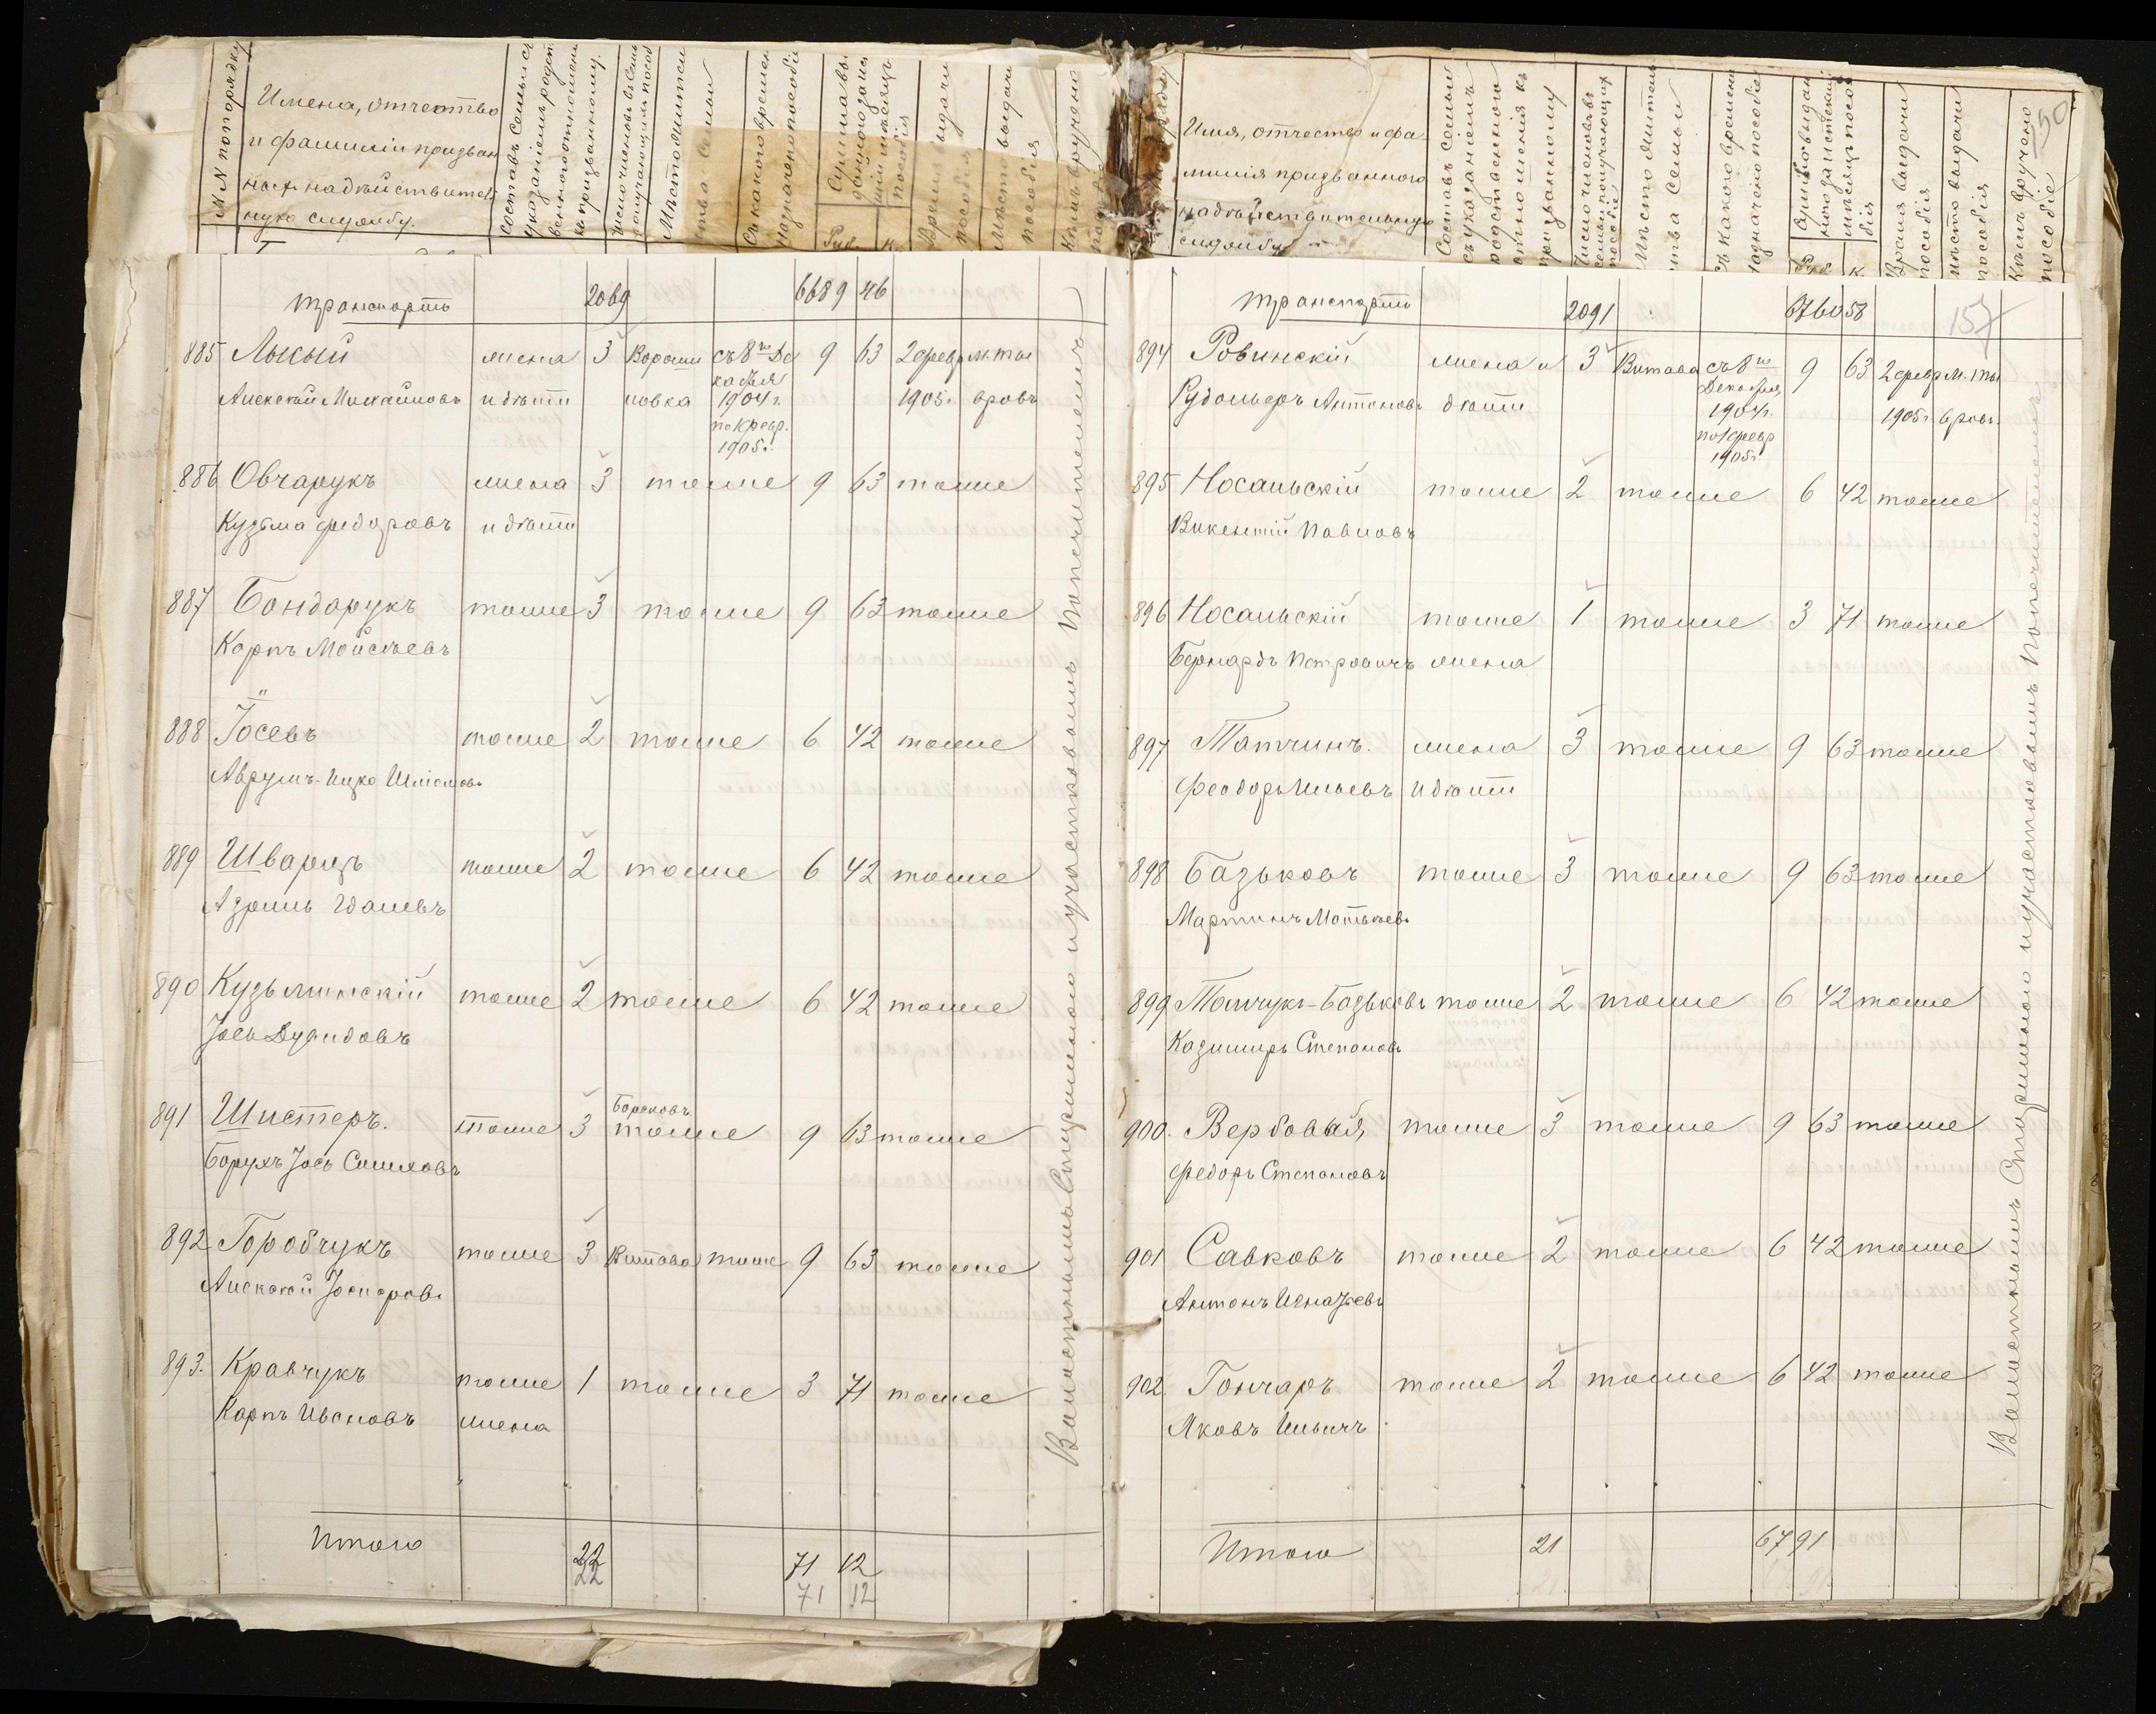 №№ по порядку
Имена, отчество
и фамилія призван
ныхъ на дѣйствитель
ную службу.
Составъ семьи съ
указаніемъ родст
веннаго отношенія
къ призванному.
Мѣсто житель
ства семьи
Съ какого времени
назначено пособіе
Руб. К.
Время выдачи
пособія
Мѣсто выдачи
пособія
Кѣмъ вручено
транспортъ 2069 6689 46
885 Лысый жена 3 Вороши съ 8го Де 9 63 2 февр. м. Ты
Алексѣй Михайловъ и дѣти ловка кабря 1904 г. по 1 февр. 1905 г. 1905 г. вровъ
886 Овчарукъ жена 3 тоже 9 63 тоже
Кузьма Федоровъ и дѣти
887 Бондарукъ тоже 3 тоже 9 63 тоже
Карпъ Мойсѣевъ
888 Іосевъ тоже 2 тоже 6 42 тоже
Аврумъ-Ицко
889 Шварцъ тоже 2 тоже 6 42 тоже
890 Кузьминскій тоже 2 тоже 6 42 тоже
Іось Дувидовъ
891 Шистеръ. тоже 3 тоже 9 63 тоже
Борухъ Іось
892 Горобчукъ тоже 3 Витава тоже 9 63 тоже
Алексѣй Іосифовъ
893. Кравчукъ тоже 1 тоже 3 71 тоже
Карпъ Ивановъ жена
Итого 22 71 12
22 71 12
Волостнымъ Старшиною и участковымъ Попечителемъ
Имя, отчество и фа
милія призваннаго
на дѣйствительную
службу
Составъ семьи
съ указаніемъ
родственнаго
отношенія къ
призванному
Число членовъ въ
семьѣ получающихъ
пособіе
Мѣсто житель
ства семьи
Съ какого времени
назначено пособіе
Руб. К.
Время выдачи
пособія
Мѣсто выдачи
пособія
Кѣмъ вручено
пособіе
150
транспортъ 2091 6760 58 157
894 Ровинскій жена и 3 Витава съ 8го 9 63 2 февр м. Ты
Рудольфъ Антоновъ дѣти Декабря 1904 г. по 1 февр 1905 г. 1905 г. вровъ.
895 Носальскій тоже 2 тоже 6 42 тоже
Викентій Павловъ
896 Носальскій тоже 1 тоже 3 71 тоже
Бернардъ Петровичъ жена
897 Татчинъ. жена 3 тоже 9 63 тоже
Феодоръ Ильевъ и дѣти
898 Базьковъ тоже 3 тоже 9 63 тоже
Мартинъ Матвѣевъ
899 Томчукъ-Базьковъ тоже 2 тоже 6 42 тоже
Казимиръ Степановъ
900. Вербовый тоже 3 тоже 9 63 тоже
Федоръ Степановъ
901 Савковъ тоже 2 тоже 6 42 тоже
Антонъ Игнатьевъ
902. Гончаръ тоже 2 тоже 6 42 тоже
Яковъ Ильичъ
Итого 21 67 91
Волостнымъ Старшиною и участковымъ Попечителемъ